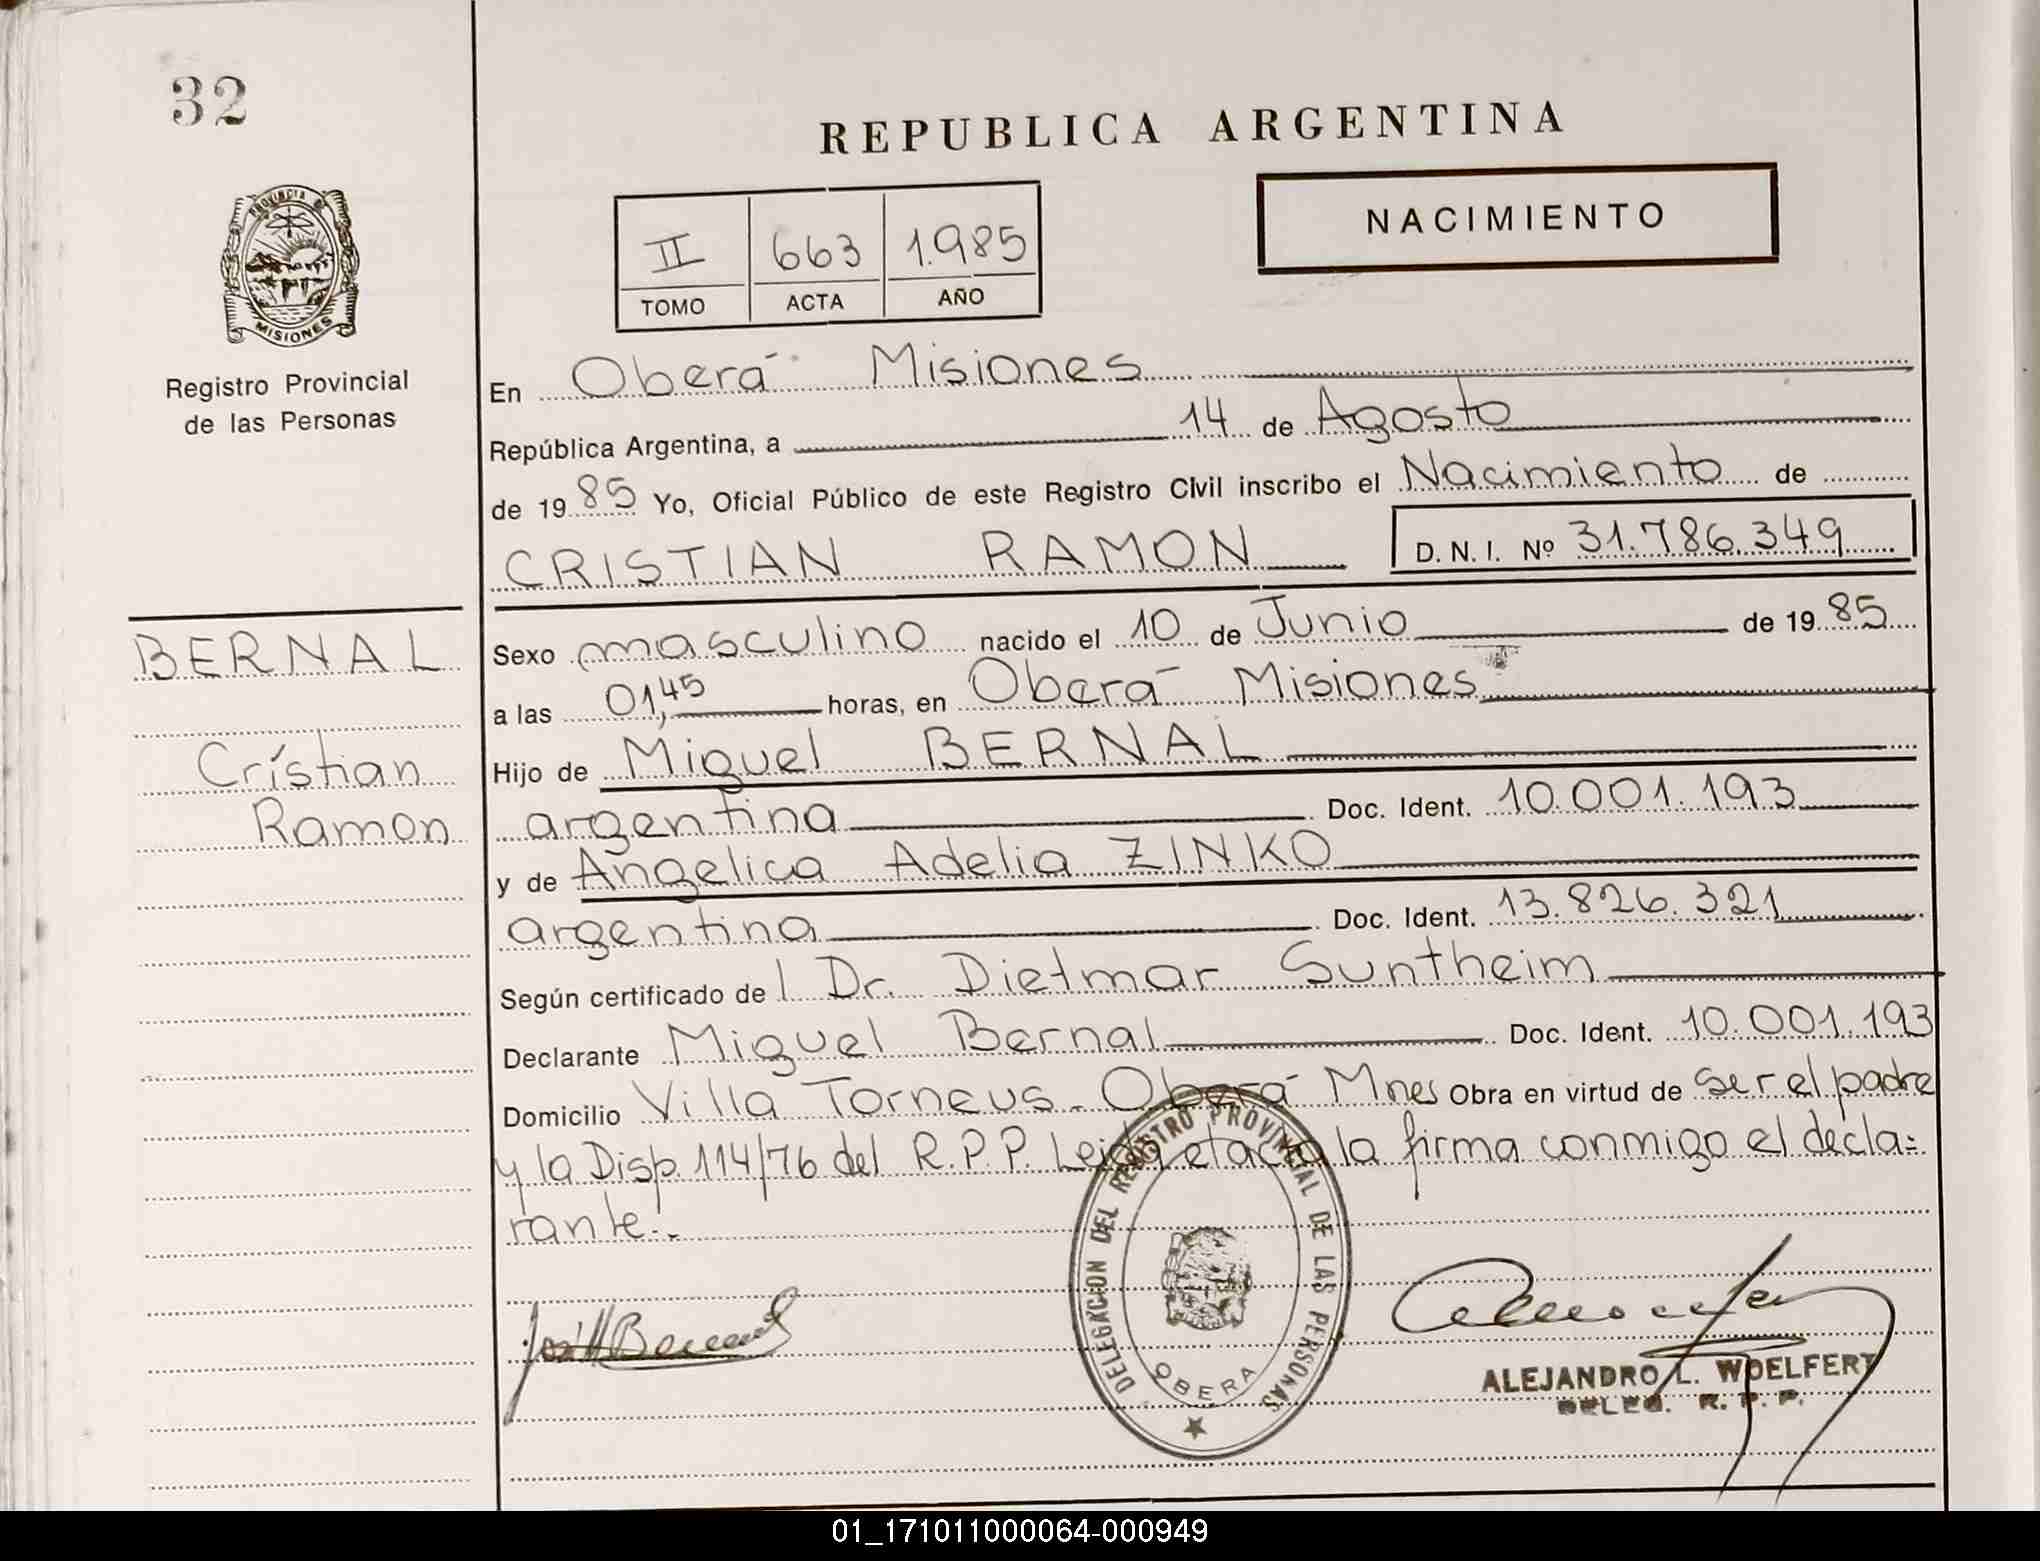 32
REPUBLICA ARGENTINA
PROVINCIA DE
MISIONES
NACIMIENTO
II 663 1.985
TOMO ACTA AÑO
Registro Provincial
de las Personas
En Oberá Misiones
República Argentina, a 14 de Agosto
de 19 85 Yo, Oficial Público de este Registro Civil inscribo el Nacimiento de
CRISTIAN RAMON D. N. I. Nº 31.786.349
BERNAL
Cristian
Ramon
Sexo masculino nacido el 10 de Junio de 19 85
a las 01,45 horas, en Oberá Misiones
Hijo de Miguel BERNAL
argentina Doc. Ident. 10.001.193
y de Angelica Adelia ZINKO
argentina Doc. Ident. 13.826.321
Según certificado de l Dr. Dietmar Suntheim
Declarante Miguel Bernal Doc. Ident. 10.001.193
Domicilio Villa Torneus - Oberá Mnes Obra en virtud de ser el padre
y la Disp. 114/76 del R.P.P. Leida el acta la firma conmigo el decla=
rante.
DELEGACION DEL REGISTRO PROVINCIAL DE LAS PERSONAS
OBERA
ALEJANDRO L. WOELFERT
DELEG. R. P. P.
01_171011000064-000949